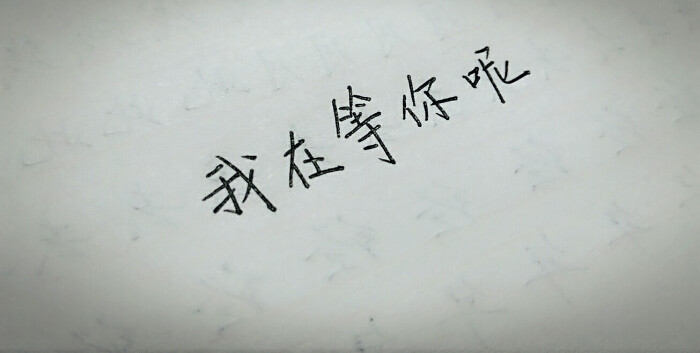 我在等你呢